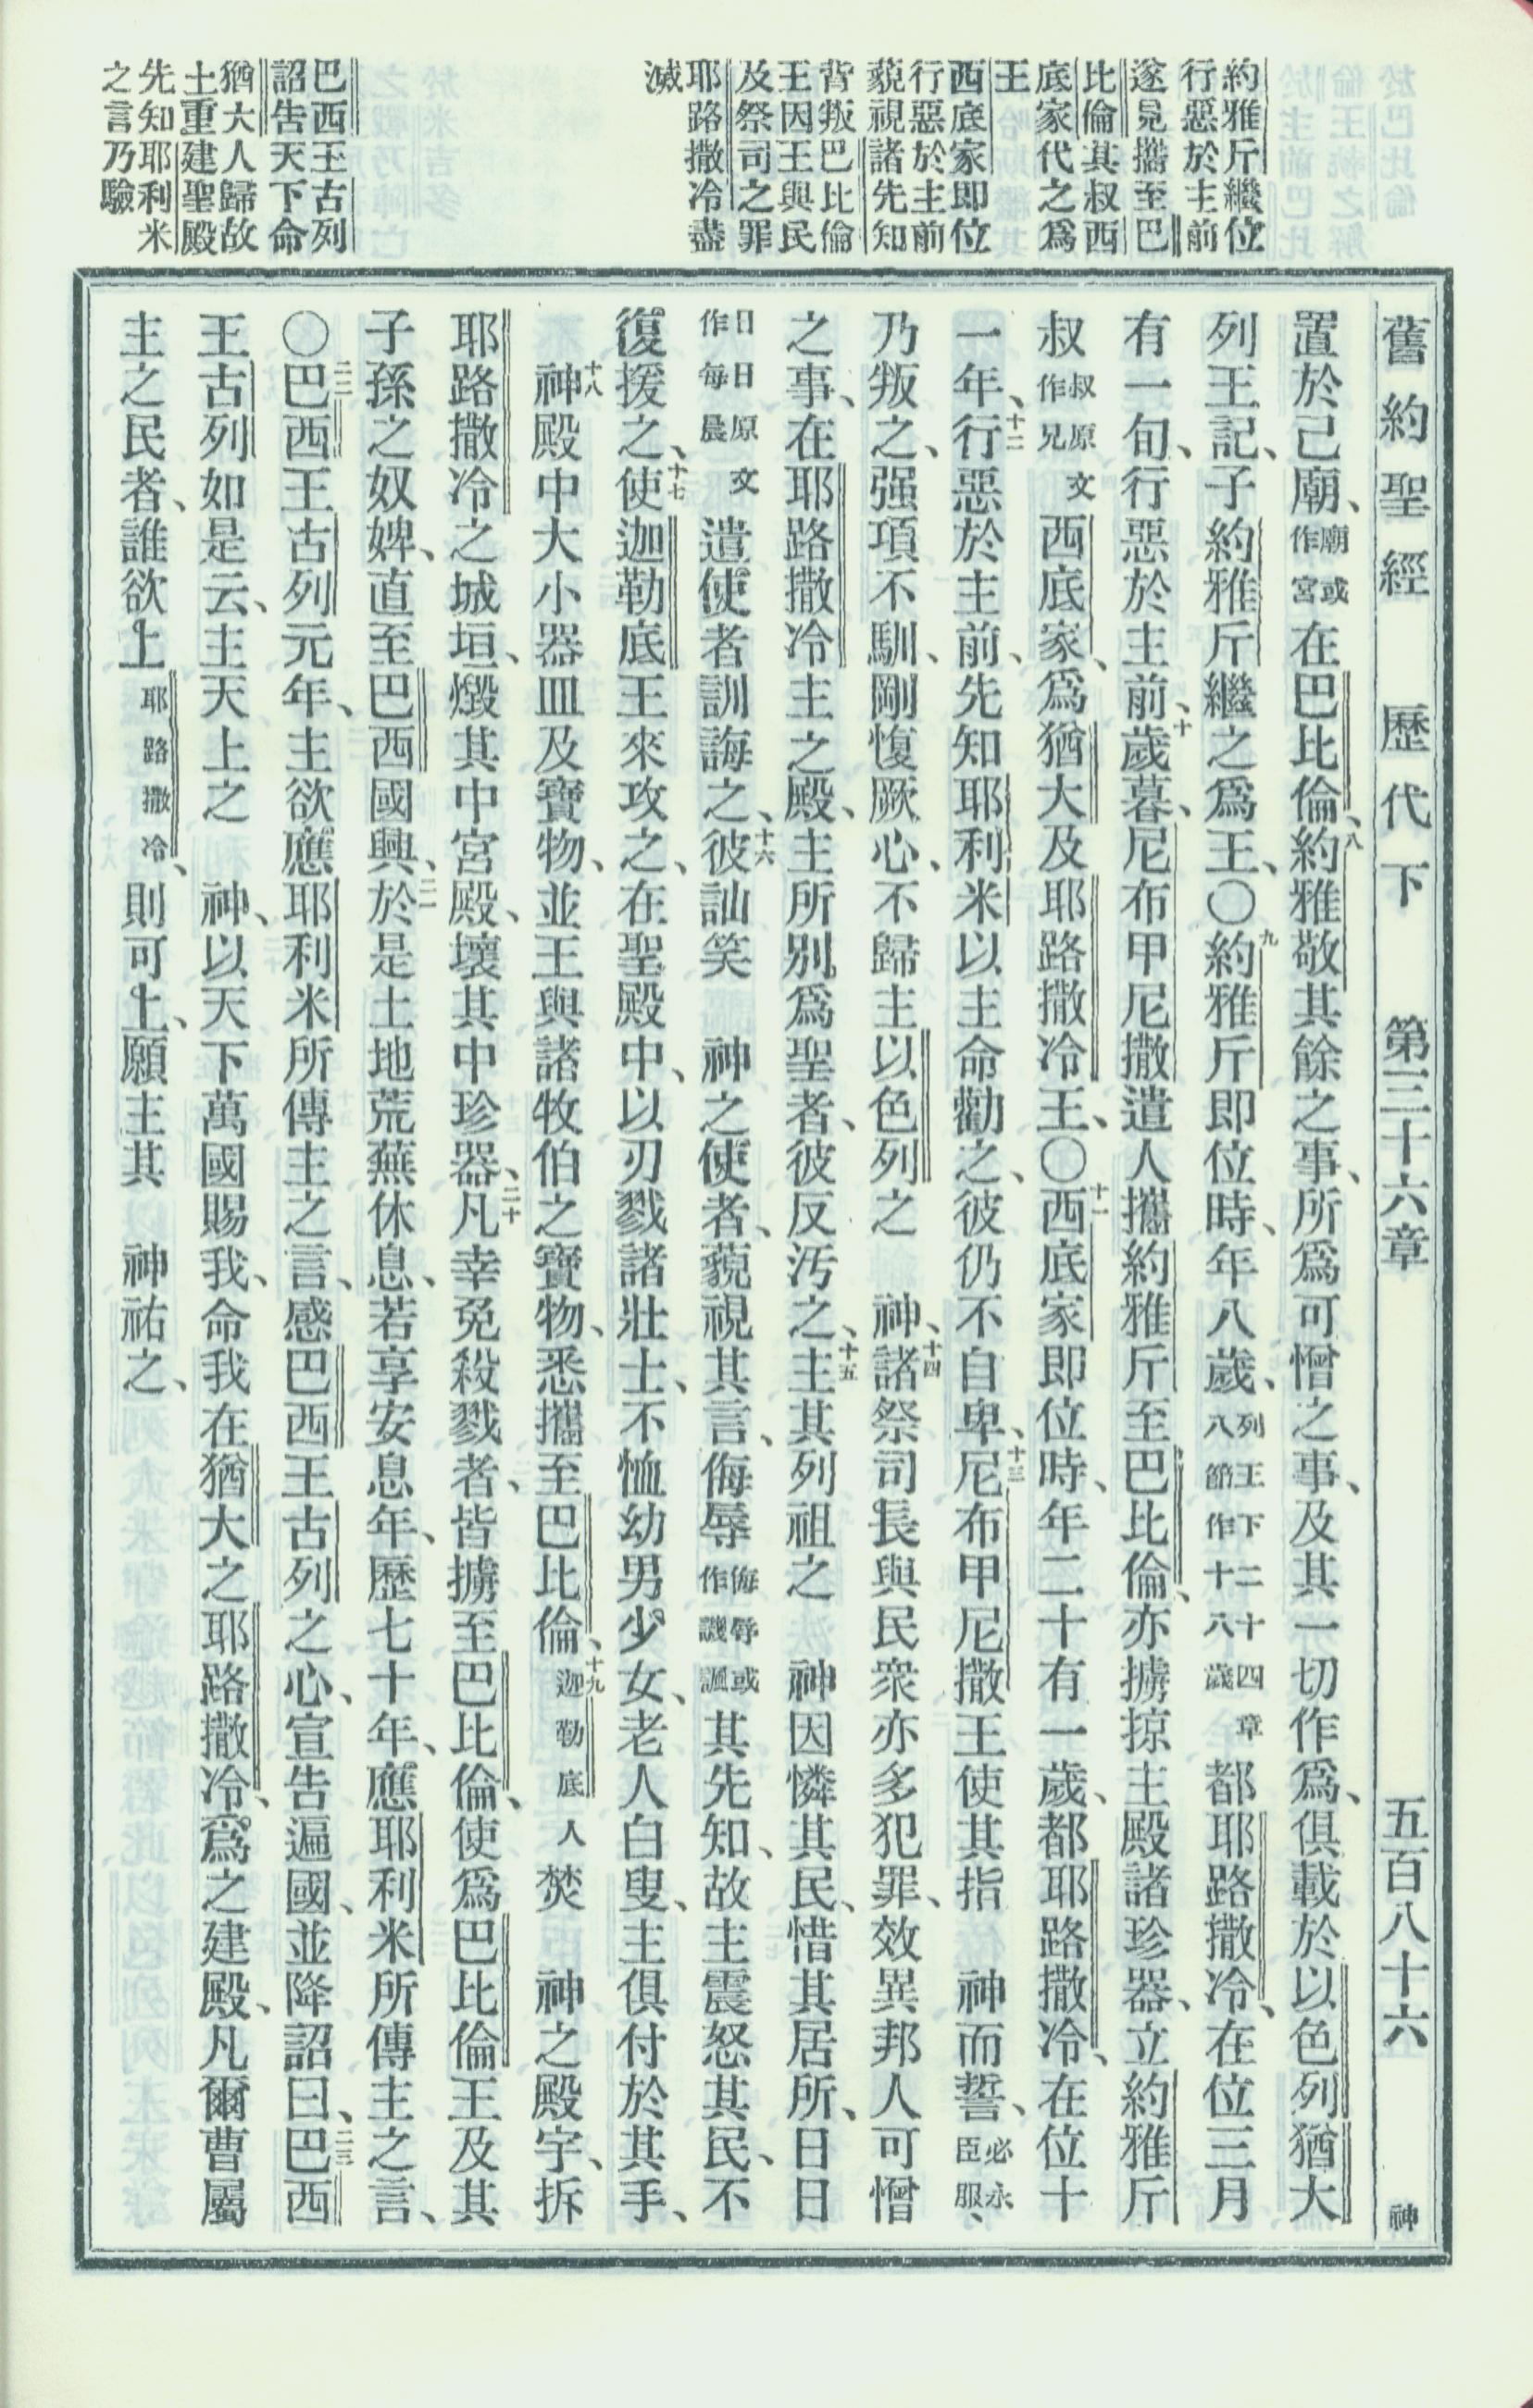 舊約聖經 歷代下 第三十六章 五百八十六 神
約雅斤繼位
行惡於主前
遂見攜至巴
比倫其叔西
底家代之爲
王
西底家即位
行惡於主前
藐視諸先知
背叛巴比倫
王因王與民
及祭司之罪
耶路撒冷盡
滅
巴西王古列
詔告天下命
猶大人歸故
土重建聖殿
先知耶利米
之言乃驗
置於己廟、廟或作宮在巴比倫、八約雅敬其餘之事、所爲可憎之事、及其一切作爲、俱載於以色列猶大
列王記、子約雅斤繼之爲王、〇九約雅斤即位時、年八歲、列王下二十四章八節作十八歲都耶路撒冷、在位三月
有一旬、行惡於主前、十歲暮、尼布甲尼撒遣人攜約雅斤至巴比倫、亦擄掠主殿諸珍器、立約雅斤
叔叔原文作兄西底家、爲猶大及耶路撒冷王、〇十一西底家即位時、年二十有一歲、都耶路撒冷、在位十
一年、十二行惡於主前、先知耶利米以主命勸之、彼仍不自卑、十三尼布甲尼撒王使其指 神而誓、必永臣服、
乃叛之、强項不馴、剛愎厥心、不歸主以色列之 神、十四諸祭司長與民衆亦多犯罪、效異邦人可憎
之事、在耶路撒冷主之殿、主所別爲聖者、彼反汚之、十五主其列祖之 神因憐其民、惜其居所、日日
日日原文作每晨遣使者訓誨之、十六彼訕笑 神之使者、藐視其言、侮辱侮辱或作譏諷其先知、故主震怒其民、不
復援之、十七使迦勒底王來攻之、在聖殿中、以刃戮諸壯士、不恤幼男少女、老人白叟、主俱付於其手、
十八神殿中大小器皿及寶物、並王與諸牧伯之寶物、悉攜至巴比倫、十九迦勒底人焚 神之殿宇、拆
耶路撒冷之城垣、燬其中宮殿、壞其中珍器、二十凡幸免殺戮者、皆擄至巴比倫、使爲巴比倫王及其
子孫之奴婢、直至巴西國興、二一於是土地荒蕪休息、若享安息年、歷七十年、應耶利米所傳主之言、
〇二二巴西王古列元年、主欲應耶利米所傳主之言、感巴西王古列之心、宣告遍國、並降詔曰、二三巴西
王古列如是云、主天上之 神、以天下萬國賜我、命我在猶大之耶路撒冷、爲之建殿、凡爾曹屬
主之民者、誰欲上耶路撒冷、則可上、願主其 神祐之、